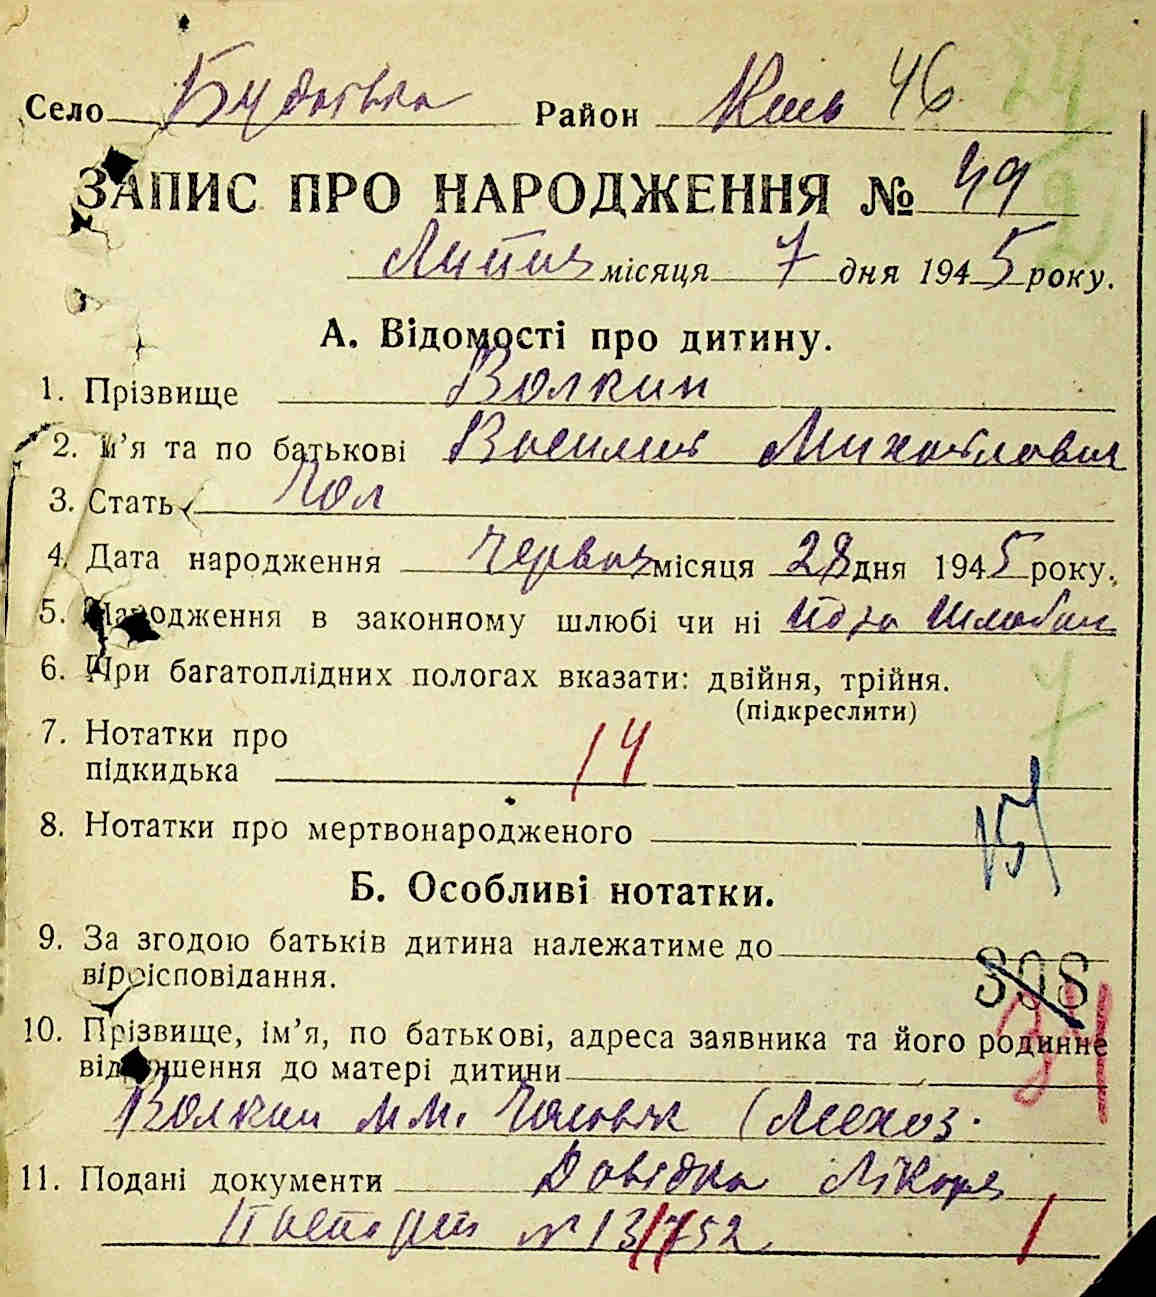 Село Будаївка Район Київ 46
ЗАПИС ПРО НАРОДЖЕННЯ № 49
Липня місяця 7 дня 1945 року.
А. Відомості про дитину.
1. Прізвище Волкин
2. Ім’я та по батькові Василий Михайлович
3. Стать Чол
4. Дата народження Червня місяця 28 дня 1945 року.
5. Народження в законному шлюбі чи ні
6. При багатоплідних пологах вказати: двійня, трійня.
(підкреслити)
7. Нотатки про
підкидька 14
8. Нотатки про мертвонародженого
Б. Особливі нотатки.
9. За згодою батьків дитина належатиме до
віроісповідання.
10. Прізвище, ім’я, по батькові, адреса заявника та його родинне
відношення до матері дитини
Волкин М.М. Чоловік
11. Подані документи Довідка Лікаря
Паспорт № 131752